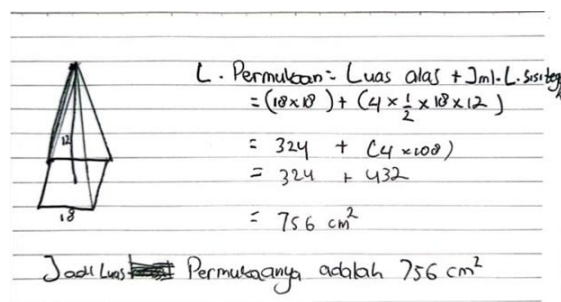 L. Permukaan = Luas alas + Jml. L. sisi teg
= (18 x 18) + (4 x 1/2 x 18 x 12)
= 324 + (4 x 108)
= 324 + 432
= 756 cm²
12
18
Jadi Luas Permukaanya adalah 756 cm²